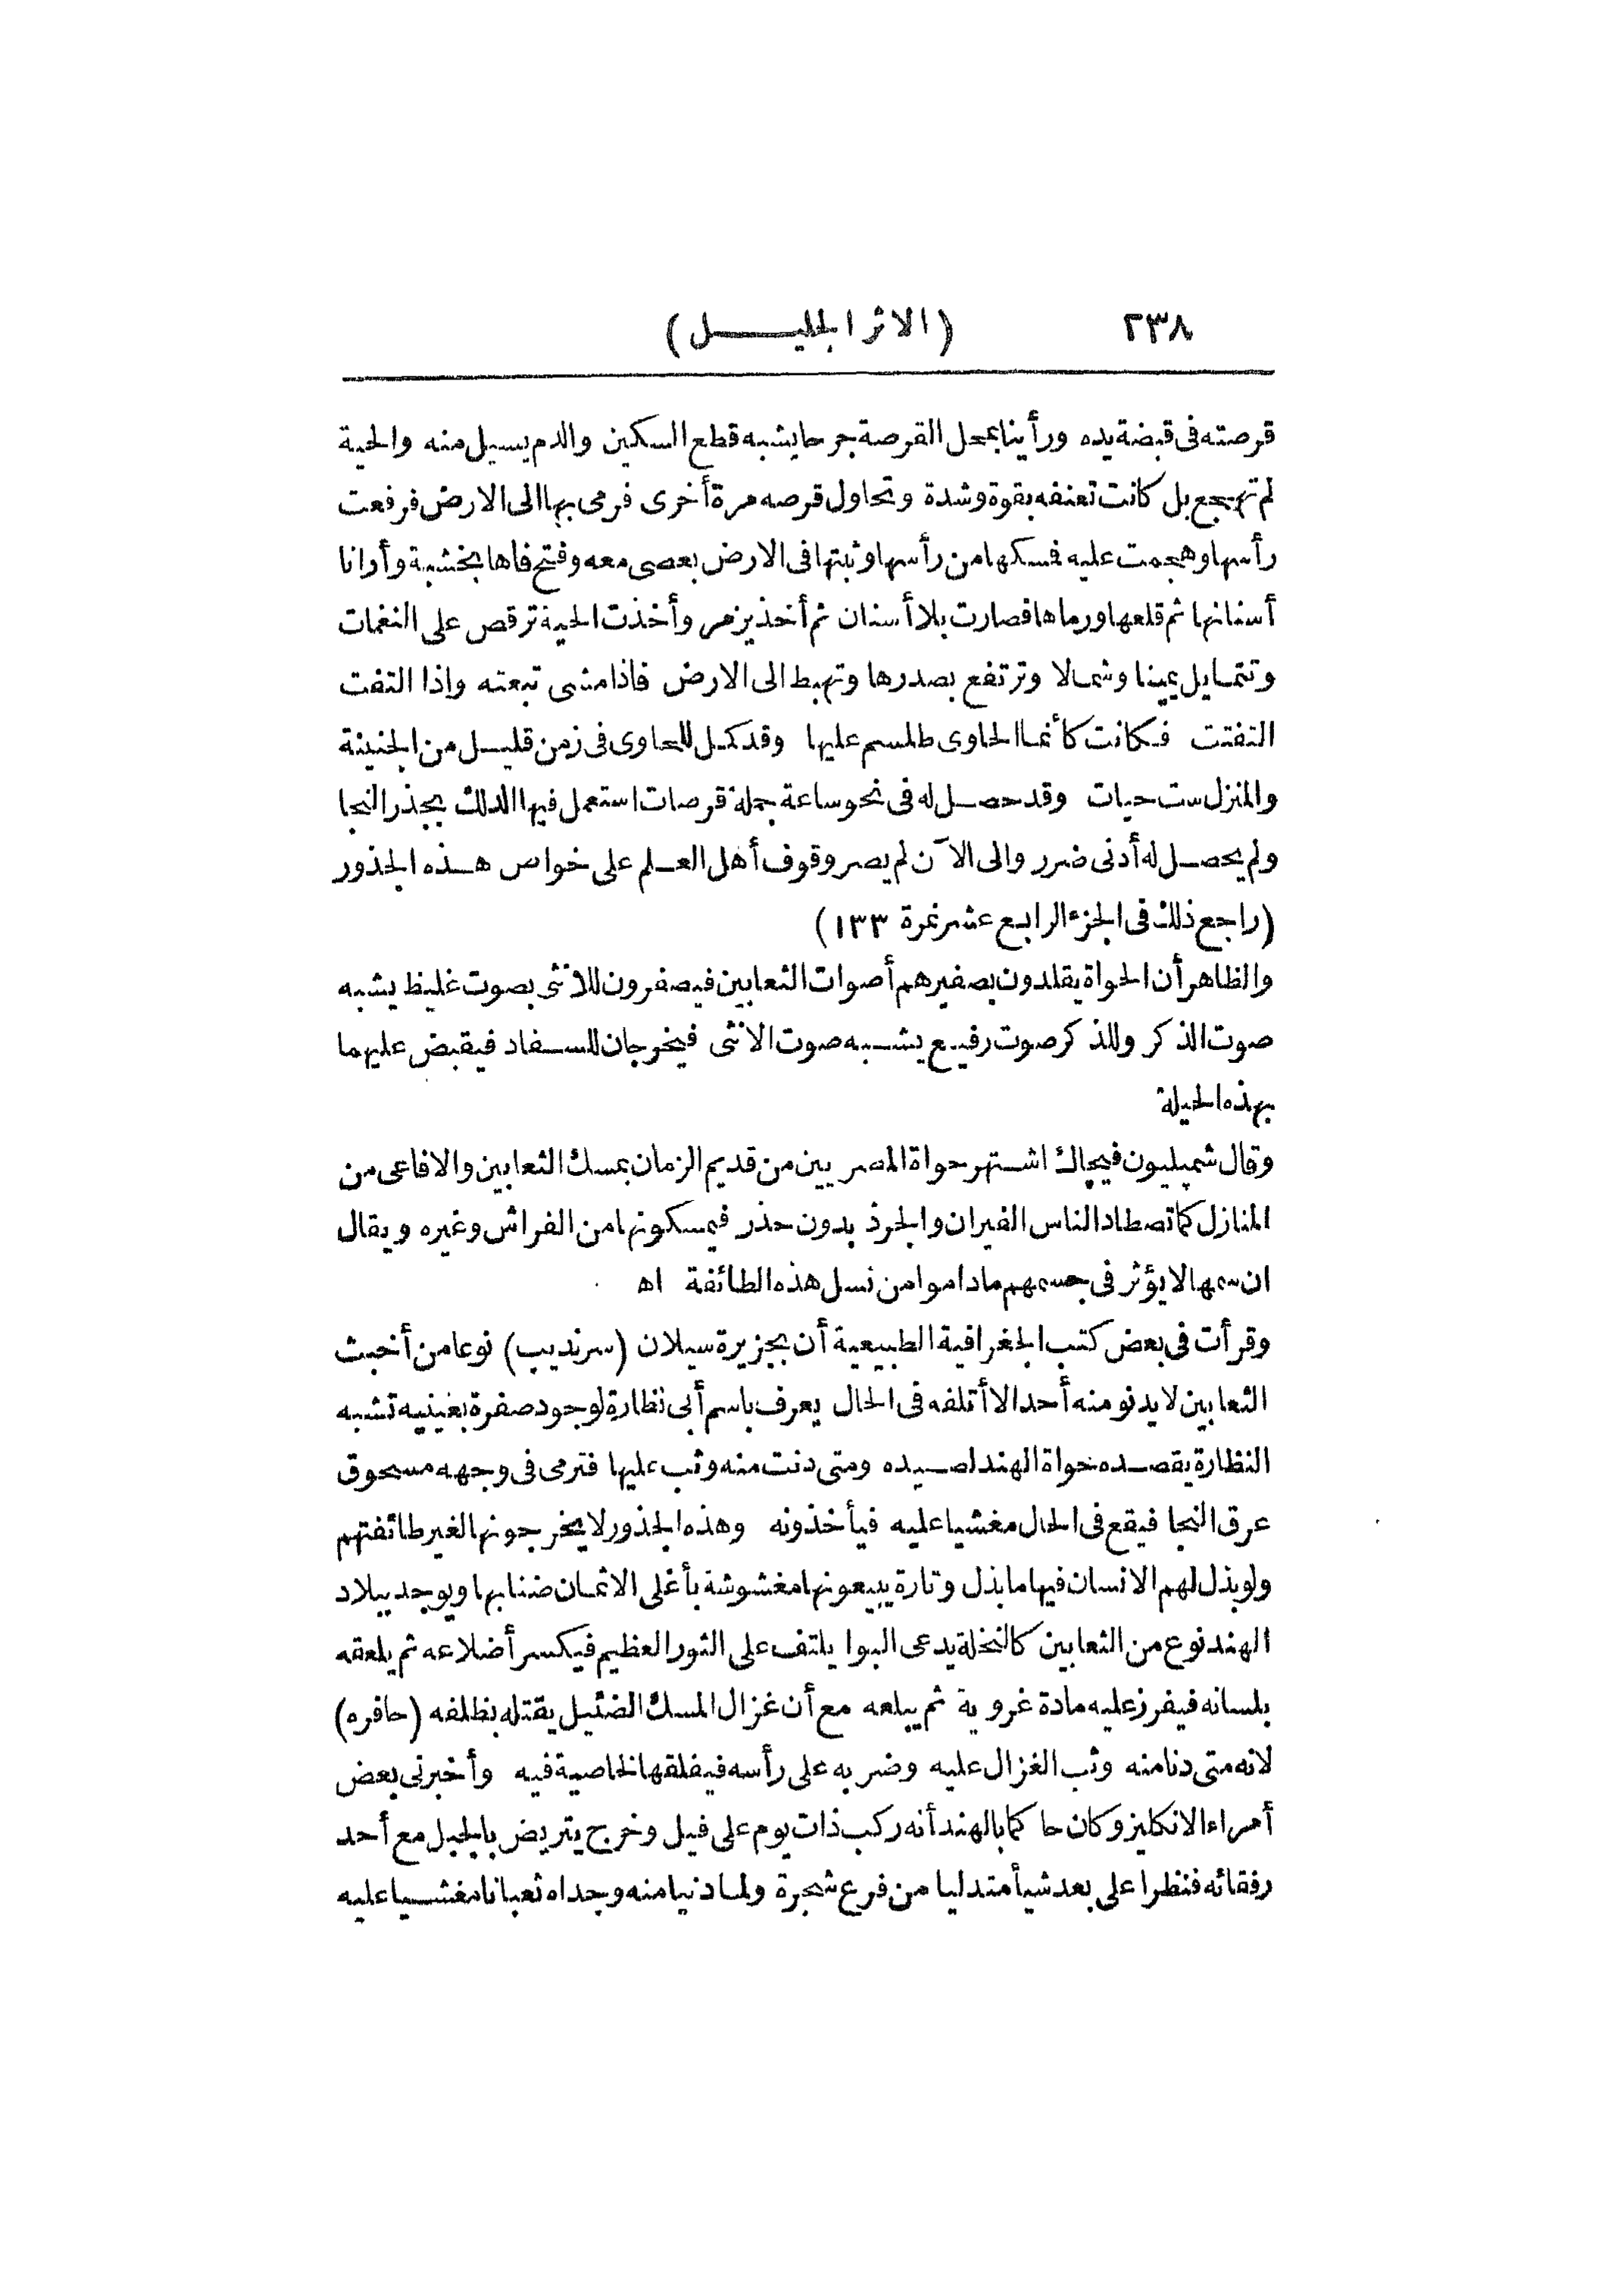 ٢٣٨ (الاثر الجليل)
قرصته فى قبضة يده ورأينا بمحل القرصة جرحا يشبه قطع السكين والدم يسيل منه والحية
لم تهجع بل كانت تعنفه بقوة وشدة وتحاول قرصه مرة أخرى فرمى بها الى الارض فرفعت
رأسها وهجمت عليه فمسكها من رأسها وثبتها فى الارض بعصى معه وفتح فاها بخشبة وأرانا
أسنانها ثم قلعها ورماها فصارت بلا أسنان ثم أخذ يزمر وأخذت الحية ترقص على النغمات
وتتمايل يمينا وشمالا وترتفع بصدرها وتهبط الى الارض فاذا مشى تبعته واذا التفت
التفتت فكانت كأنما الحاوى طلسم عليها وقد كمل للحاوى فى زمن قليل من الجنينة
والمنزل ست حيات وقد حصل له فى نحو ساعة جملة قرصات استعمل فيها الدلك بجذر النجا
ولم يحصل له أدنى ضرر والى الآن لم يصر وقوف أهل العلم على خواص هذه الجذور
(راجع ذلك فى الجزء الرابع عشر نمرة ١٣٣)
والظاهر أن الحواة يقلدون بصفيرهم أصوات الثعابين فيصفرون للانثى بصوت غليظ يشبه
صوت الذكر وللذكر صوت رفيع يشبه صوت الانثى فيخرجان للسفاد فيقبض عليهما
بهذه الحيلة
وقال شمپليون فيچاك اشتهر حواة المصريين من قديم الزمان بمسك الثعابين والافاعى من
المنازل كما تصطاد الناس الفيران والجرذ بدون حذر فيمسكونها من الفراش وغيره ويقال
ان سمها لا يؤثر فى جسمهم ماداموا من نسل هذه الطائفة اه
وقرأت فى بعض كتب الجغرافية الطبيعية أن بجزيرة سيلان (سرنديب) نوعا من أخبث
الثعابين لا يدنو منه أحد الا أتلفه فى الحال يعرف باسم أبى نظارة لوجود صفرة بعينيه تشبه
النظارة يقصده حواة الهند لصيده ومتى دنت منه وثب عليها فترمى فى وجهه مسحوق
عرق النجا فيقع فى الحال مغشيا عليه فيأخذونه وهذه الجذور لا يخرجونها لغير طائفتهم
ولو بذل لهم الانسان فيها ما بذل وتارة يبيعونها مغشوشة بأغلى الاثمان ضنا بها ويوجد ببلاد
الهند نوع من الثعابين كالنخلة يدعى البوا يلتف على الثور العظيم فيكسر أضلاعه ثم يلعقه
بلسانه فيفرز عليه مادة غروية ثم يبلعه مع أن غزال المسك الضئيل يقتله بظلفه (حافره)
لانه متى دنا منه وثب الغزال عليه وضربه على رأسه فيفلقها لخاصية فيه وأخبرنى بعض
أمراء الانكليز وكان حاكما بالهند أنه ركب ذات يوم على فيل وخرج يتريض بالجبل مع أحد
رفقائه فنظرا على بعد شيأ متدليا من فرع شجرة ولما دنيا منه وجداه ثعبانا مغشيا عليه